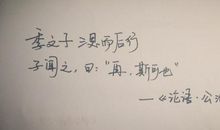 季文子三思而后行
子闻之，曰：“再，斯可也”
—《论语·公冶